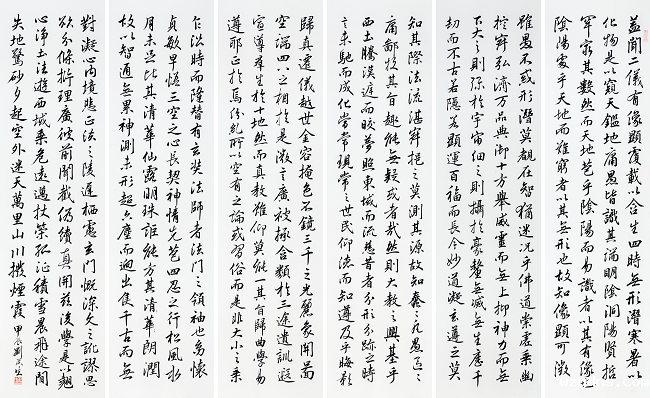 蓋聞二儀有像顯覆載以含生四時無形潛寒暑以
化物是以窺天鑑地庸愚皆識其端明陰洞陽賢哲
罕窮其數然而天地苞乎陰陽而易識者以其有像也
陰陽處乎天地而難窮者以其無形也故知像顯可徵
雖愚不惑形潛莫覩在智猶迷況乎佛道崇虛乘幽
控寂弘濟萬品典御十方舉威靈而無上抑神力而無
下大之則彌於宇宙細之則攝於毫釐無滅無生歷千
劫而不古若隱若顯運百福而長今妙道凝玄遵之莫
知其際法流湛寂挹之莫測其源故知蠢蠢凡愚區區
庸鄙投其旨趣能無疑或者哉然則大教之興基乎
西土騰漢庭而皎夢照東域而流慈昔者分形分跡之時
言未馳而成化當常現常之世民仰德而知遵及乎晦影
歸真遷儀越世金容掩色不鏡三千之光麗象開圖
空端四八之相於是微言廣被拯含類於三途遺訓遐
宣導群生於十地然而真教難仰莫能一其旨歸曲學易
遵邪正於焉紛糺所以空有之論或習俗而是非大小之乘
乍沿時而隆替有玄奘法師者法門之領袖也幼懷
貞敏早悟三空之心長契神情先苞四忍之行松風水
月未足比其清華仙露明珠詎能方其清華朗潤
故以智通無累神測未形超六塵而迥出隻千古而無
對凝心內境悲正法之陵遲栖慮玄門慨深文之訛謬思
欲分條析理廣彼前聞截偽續真開茲後學是以翹
心淨土法遊西域乘危遠邁杖策孤征積雪晨飛途間
失地驚砂夕起空外迷天萬里山川撥煙霞 甲辰劉